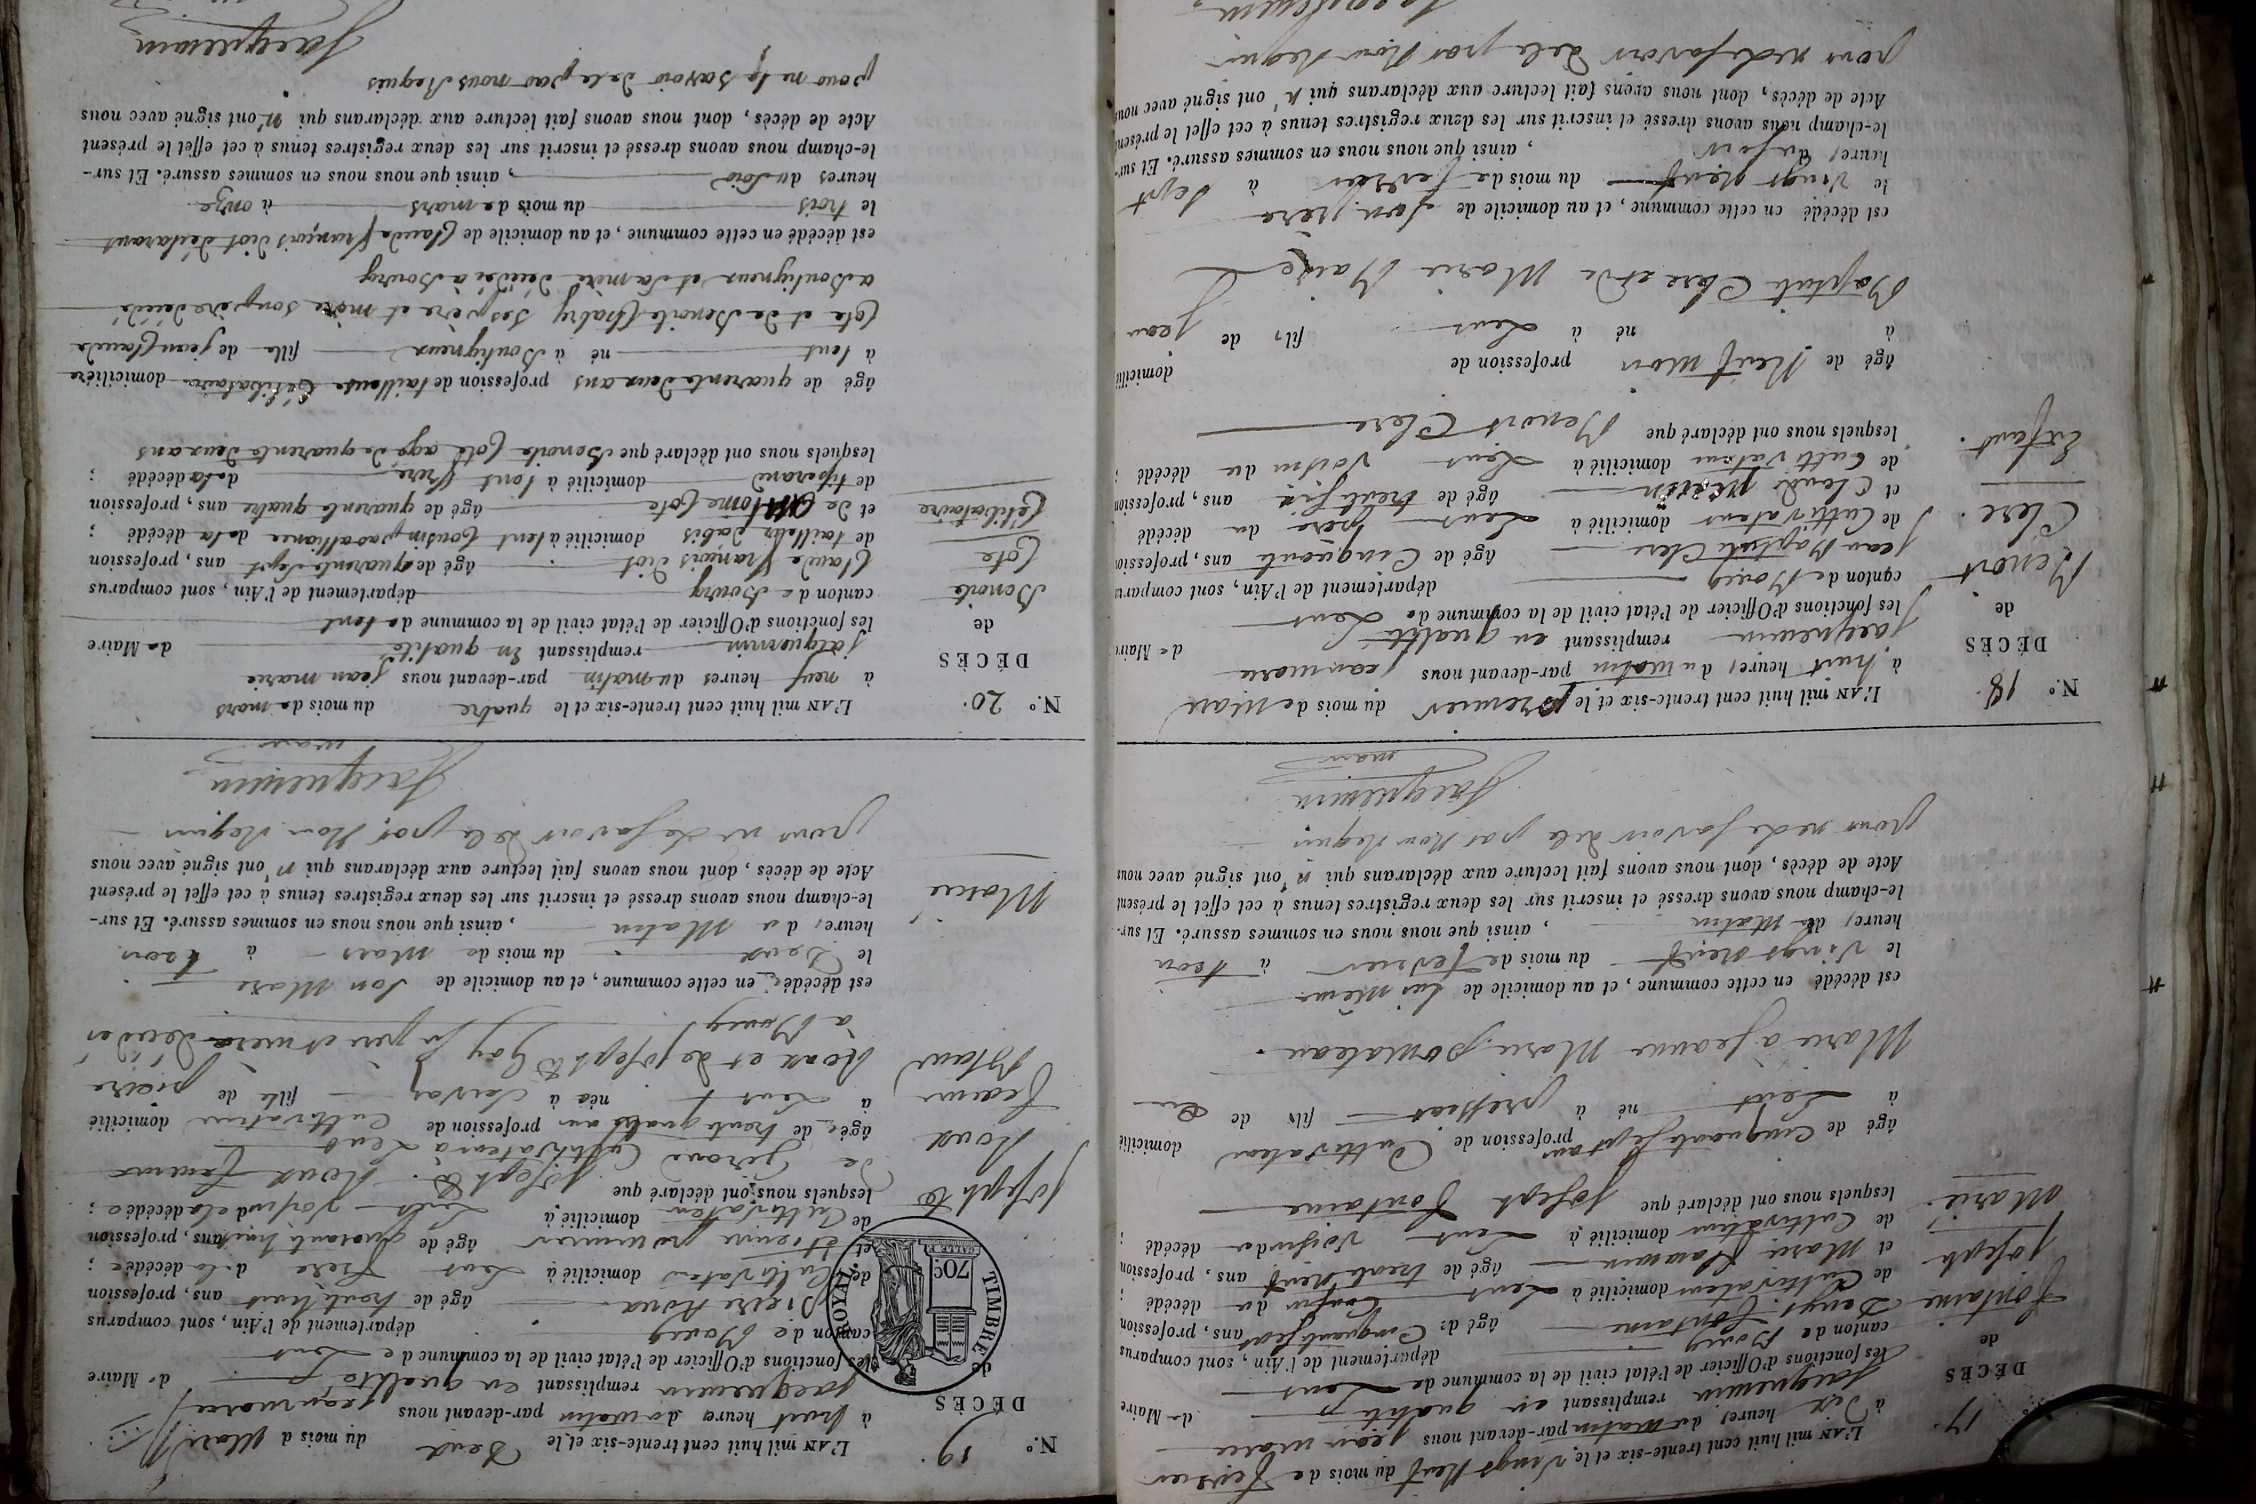 N.° 17.
DÉCÈS
de
Fontaine
joseph
Marié.
L'AN mil huit cent trente-six et le vingt Neuf du mois de fevrier
à Dix heures du Matin par-devant nous jean marie
Jacquemin remplissant en qualité de Maire
les fonctions d'Officier de l'état civil de la commune de Lent
canton de Bourg département de l'Ain, sont comparus
Fontaine âgé de Cinquante ans, profession
de Cultivateur domicilié à Lent Cousin du décédé ;
et Marie âgé de trente Neuf ans, profession
de Cultivateur domicilié à Lent Voisin du décédé ;
lesquels nous ont déclaré que joseph Fontaine
âgé de Cinquante Sept ans profession de Cultivateur domicilié
à Lent né à fils de
Marié a jeanne Marie
est décédé en cette commune, et au domicile de Lui même
le vingt Neuf du mois de fevrier à
heures du Matin, ainsi que nous nous en sommes assuré. Et sur-
le-champ nous avons dressé et inscrit sur les deux registres tenus à cet effet le présent
Acte de décès, dont nous avons fait lecture aux déclarans qui n'ont signé avec nous
pour ne le savoir de le par Nous Requis
Jacquemin
maire
N.° 18.
DÉCÈS
de
Benoit
Clerc.
Enfant.
L'AN mil huit cent trente-six et le premier du mois de Mars
à huit heures du Matin par-devant nous jean marie
jacquemin remplissant en qualité de Maire
les fonctions d'Officier de l'état civil de la commune de Lent
canton de Bourg département de l'Ain, sont comparus
jean Baptiste Clerc âgé de Cinquante ans, profession
de Cultivateur domicilié à Lent père du décédé ;
et Claude âgé de trente Six ans, profession
de Cultivateur domicilié à Lent voisin du décédé ;
lesquels nous ont déclaré que Benoit Clerc
âgé de Neuf Mois profession de domicilié
à né à Lent fils de jean
Baptiste Clerc et de Marie
est décédé en cette commune, et au domicile de Son père
le vingt Neuf du mois de fevrier à Sept
heures du soir, ainsi que nous nous en sommes assuré. Et sur-
le-champ nous avons dressé et inscrit sur les deux registres tenus à cet effet le présent
Acte de décès, dont nous avons fait lecture aux déclarans qui n'ont signé avec nous
pour ne le savoir de le par Nous Requis
Jacquemin
N.° 19.
DÉCÈS
de
joseph te
Roux
femme
Marie
TIMBRE ROYAL
70 c.
L'AN mil huit cent trente-six et le Deux du mois de Mars
à huit heures du Matin par-devant nous jean marie
jacquemin remplissant en qualité de Maire
les fonctions d'Officier de l'état civil de la commune de Lent
canton de Bourg département de l'Ain, sont comparus
Pierre Roux âgé de trente huit ans, profession
de Cultivateur domicilié à Lent frère de la décédée ;
et etienne âgé de quarante huit ans, profession
de Cultivateur domicilié à Lent voisin de la décédée ;
lesquels nous ont déclaré que joseph te Roux femme
de Cultivateur a Lent
âgée de trente quatre ans profession de Cultivatrice domicilié
à Lent née à Servas fille de pierre
Roux et de joseph te Goy Ses père et mère Décédés
à Bourg
est décédée en cette commune, et au domicile de Son Mari
le Deux du mois de Mars à trois
heures du Matin, ainsi que nous nous en sommes assuré. Et sur-
le-champ nous avons dressé et inscrit sur les deux registres tenus à cet effet le présent
Acte de décès, dont nous avons fait lecture aux déclarans qui n'ont signé avec nous
pour ne le savoir de le par Nous Requis
Jacquemin
maire
N.° 20.
DÉCÈS
de
Benoite
Cote
Célibataire
L'AN mil huit cent trente-six et le quatre du mois de mars
à neuf heures du matin par-devant nous jean marie
jacquemin remplissant En qualité de Maire
les fonctions d'Officier de l'état civil de la commune de lent
canton de Bourg département de l'Ain, sont comparus
Claude françois Diot âgé de quarante Sept ans, profession
de tailleur d'abis domicilié à lent Cousin par alliance de la décédé ;
et de Antoine Cote âgé de quarante quatre ans, profession
de tiserand domicilié à lent frère de la décédé ;
lesquels nous ont déclaré que Benoite Cote age de quarante deux ans
âgé de quarante deux ans profession de tailleuse Célibataire domiciliée
à lent né à Bouligneux fille de jean Claude
Cote et de Benoite Chabry Ses père et mère Son père décédé
a Bouligneux et Sa mère décédé à Bourg
est décédée en cette commune, et au domicile de Claude françois Diot déclarant
le trois du mois de mars à onze
heures du Soir, ainsi que nous nous en sommes assuré. Et sur-
le-champ nous avons dressé et inscrit sur les deux registres tenus à cet effet le présent
Acte de décès, dont nous avons fait lecture aux déclarans qui n'ont signé avec nous
pour ne le savoir de le par nous Requis
Jacquemin